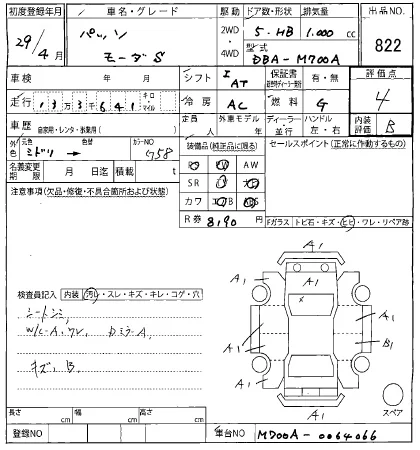 初度登録年月 車名・グレード 駆動 ドア数・形状 排気量 出品NO
29/4月 パッソ モーダS 2WD・4WD 5・HB 1.000 cc 822
型式 DBA-M700A
車検 年 月 シフト I AT 保証書 有・無 評価点
走行 13万3千641 キロ・マイル 冷房 AC 燃料 G 4
車歴 自家用・レンタ・事業用( ) 定員 人 外車モデル 年 ディーラー・並行 ハンドル 左・右 内装評価 B
外色 元色 ミドリ → 色替 カラーNO 758 装備品(純正品に限る) セールスポイント(正常に作動するもの)
名義変更期限 月 日迄 積載 t AW
SR
注意事項(欠品・修復・不具合箇所および状態) カワ
R券 8190 円 Fガラス トビ石・キズ・ヒビ・ワレ・リペア跡
A1
A1 A1
検査員記入 内装 汚れ・スレ・キズ・キレ・コゲ・穴
シートシミ、
W/C-A、ワレ、 DミラーA、
A1 A1
A1 B1
キズ、B、
A1 A1
A1
スペア
長さ cm 幅 cm 高さ cm
登録NO 車台NO M700A-0064066